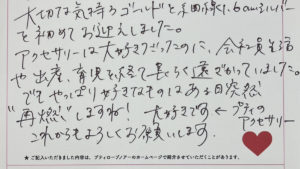 大切な気持ち ゴールドと 同様に、6amシルバー
を初めてお迎えしました。
アクセサリーは大好きだったのに、会社員生活
や出産、育児を経て長らく遠ざかっていました。
でもやっぱり好きなものはある日突然
"再燃"しますね! 大好きです ← プティの
アクセサリー
これからもよろしくお願いします。
★ ご記入いただきました内容は、プティローブノアーのホームページで紹介させていただくことがあります。